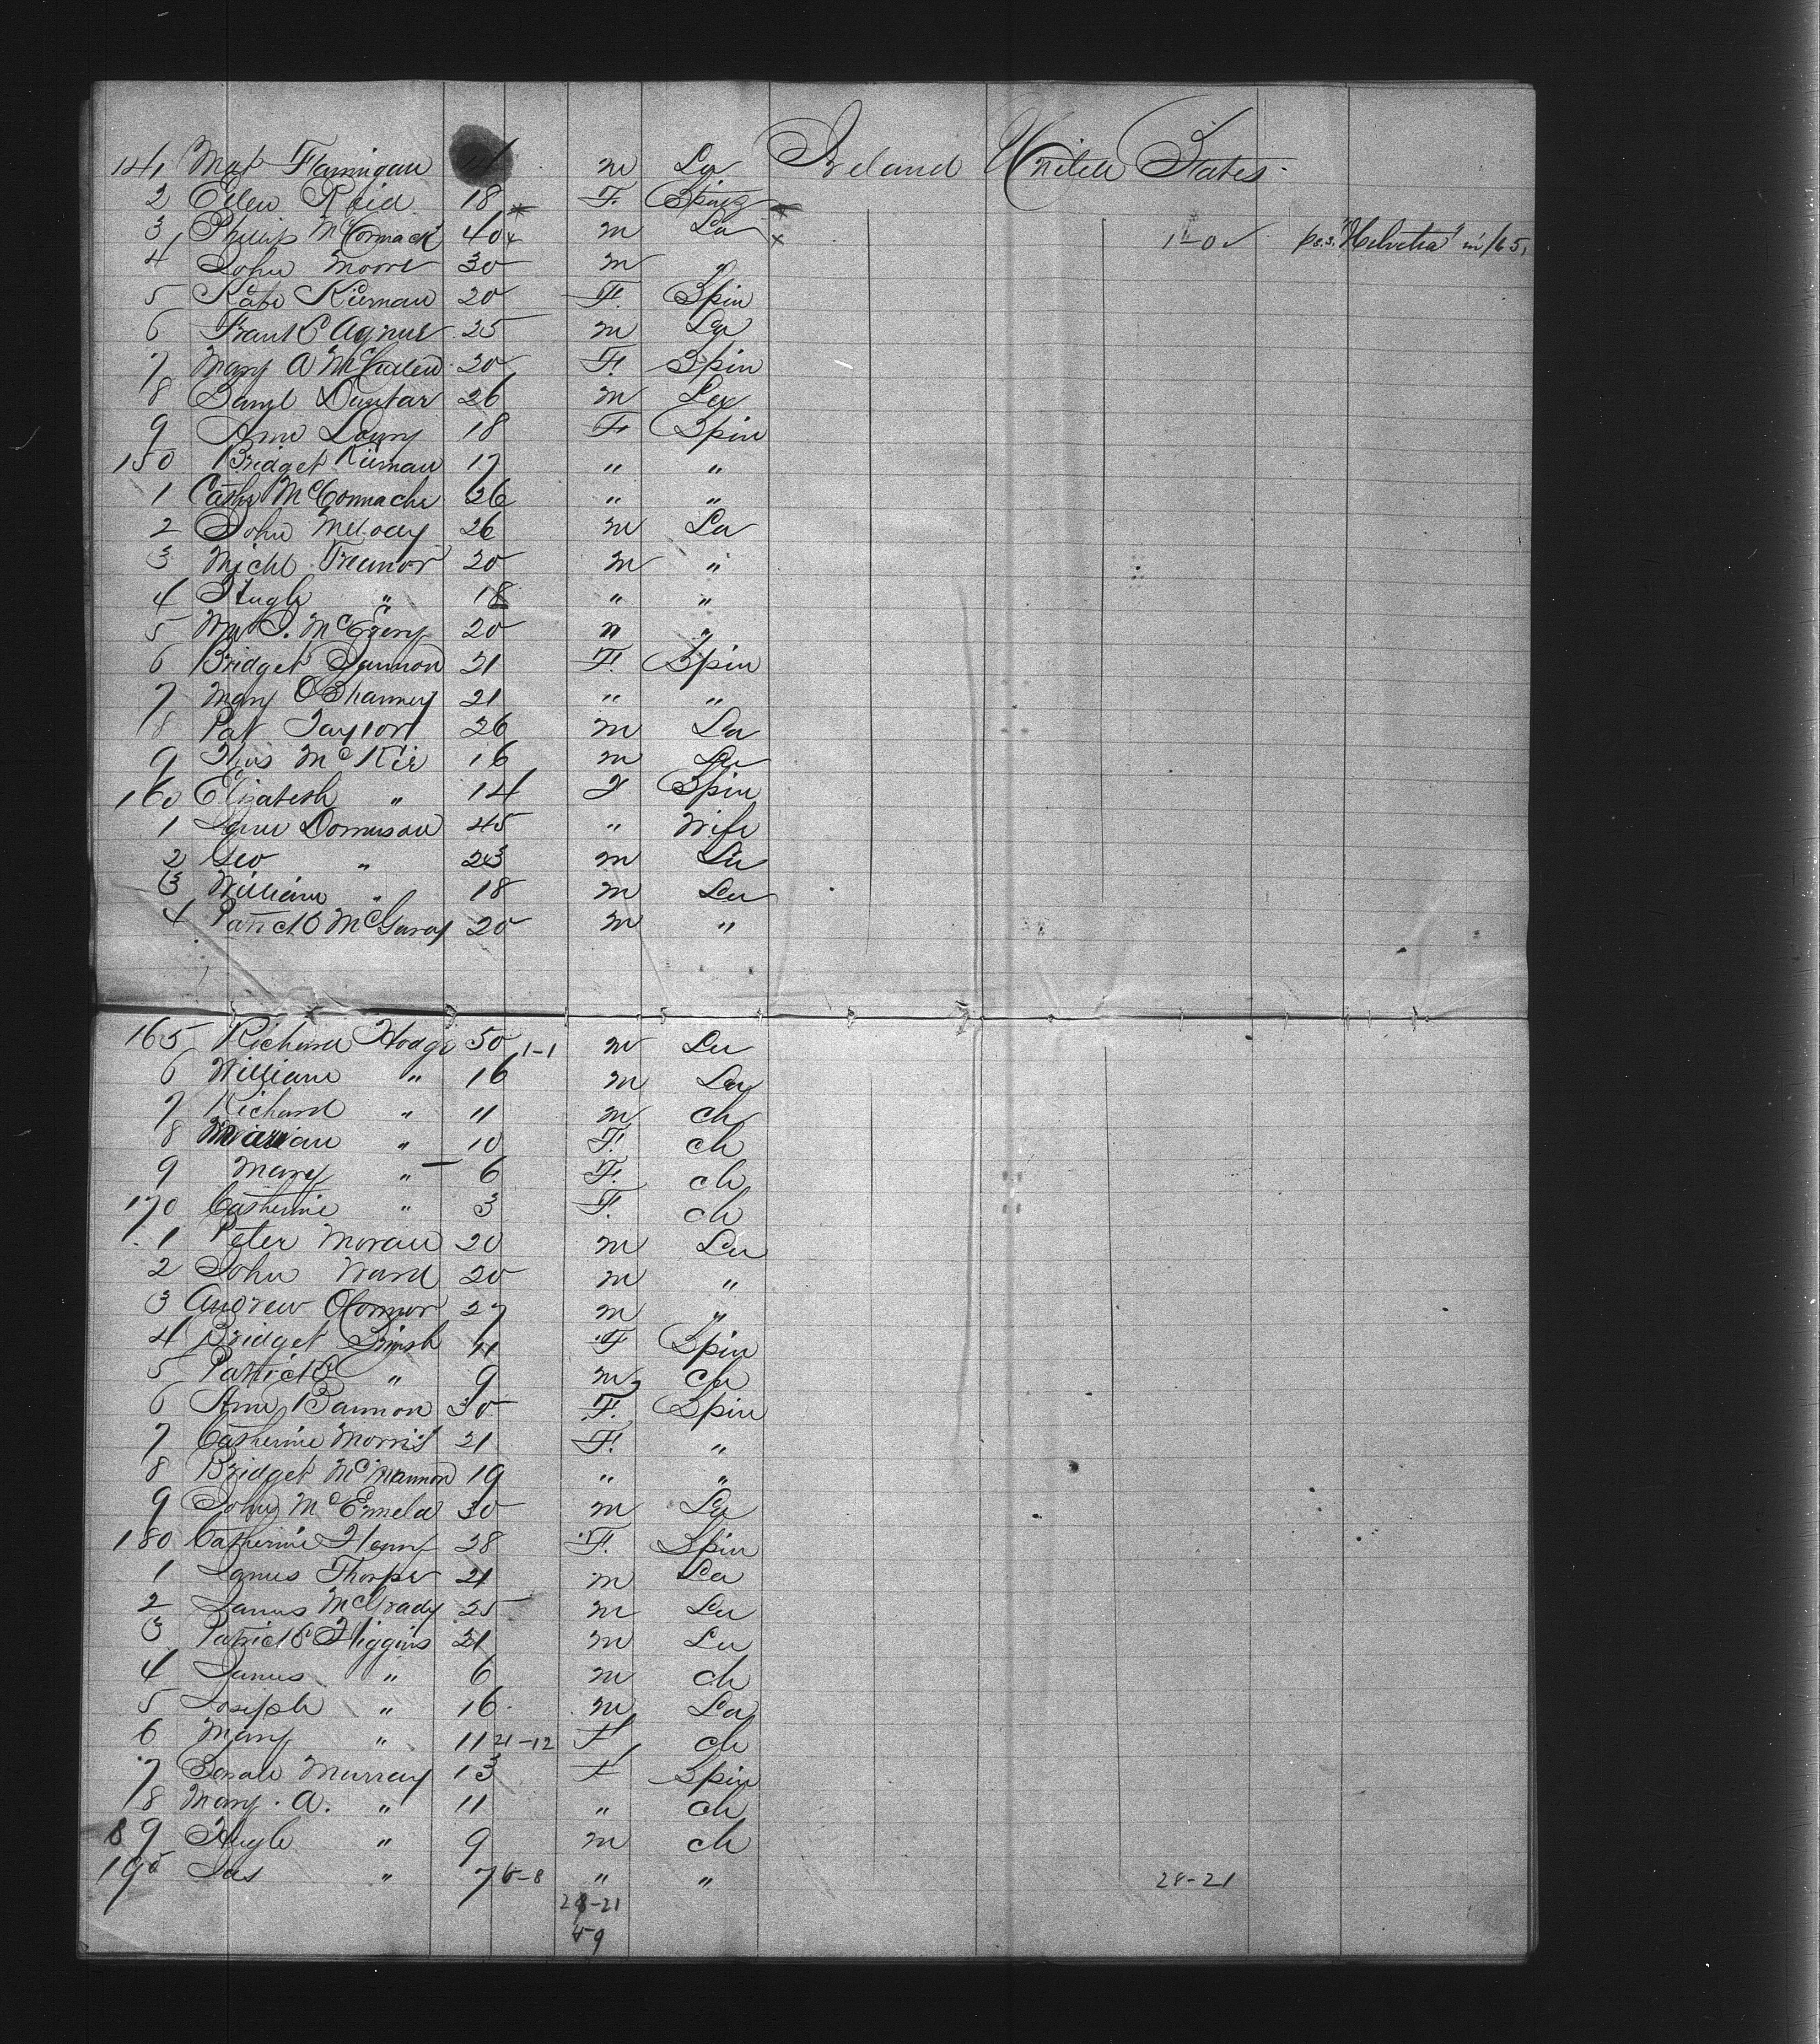 141 Mat Flannigan m La Ireland United States
2 Ellen Reid 18 F. Spin
3 Phillip McCormack 40 m La 1-0 p.s.s. "Helvetia" in /65,
4 John Moore 30 m "
5 Kate Kiernan 20 F. Spin
6 Frank Agnue 25 m La
7 Mary A 20 F. Spin
8 Danl Dunbar 26 m La
9 Ann Lowry 18 F Spin
150 Bridget Kiernan 17 " "
1 Cathe McCormache 26 " "
2 John Melody 26 m La
3 Michl Treanor 20 m "
4 Hugh " 18 " "
5 Wm J. 20 " "
6 Bridget Gannon 21 F. Spin
7 Mary OShanney 21 " "
8 Pat Taylor 26 m La
9 Thos McKie 16 m La
160 Elizabeth " 14 F Spin
1 Jane Dennison 45 " Wife
2 Geo " 23 m La
3 William " 18 m La
4 Patrick McGaray 20 m "
165 Richard Hodge 50 1-1 m La
6 William " 16 m La
7 Richard " 11 m ch
8 Marian " 10 F. ch
9 Mary " 6 F. ch
170 Catherine " 3 F. ch
1 Peter Moran 20 m La
2 John Ward 20 m "
3 Andrew OConnor 27 m "
4 Bridget 11 F Spin
5 Patrick " 9 m ch
6 Ann Bannon 30 F. Spin
7 Catherine Morris 21 F. "
8 Bridget McMannon 19 " "
9 John 30 m La
180 Catherine Henry 28 F. Spin
1 James Thorpe 21 m La
2 James McGrady 25 m La
3 Patrick Higgins 21 m La
4 James " 6 m ch
5 Joseph " 16 m La
6 Mary " 11 21-12 F ch
7 Sarah Murray 13 F Spin
8 Mary A. " 11 " ch
89 Hugh " 9 m ch
190 Jas " 7 6-8 " " 28-21
28-21
49